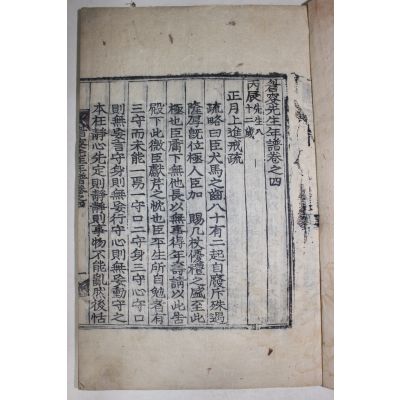 眘窩先生年譜卷之四
丙辰先生八十二歲
正月上進戒疏
疏略曰臣犬馬之齒八十有二起自廢斥殊遇
隆厚旣位極人臣加 賜几杖優禮之盛至此
極也臣席下無他長以無事得年壽請以此告
殿下此微臣獻芹之忱也臣平生所自勉者有
三守而未能一焉一守口二守身三守心守口
則無妄言守身則無妄行守心則無妄動守之
本在靜心先定則靜靜則事物不能亂然後恬